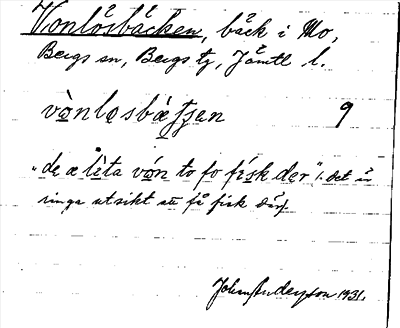 Vonlösbäcken, bäck i Mo,
Bergs sn, Bergs tg, Jämtl l.
vònlosbæ̀ꞔꞔen 9
"de æ lìta vón to fo físk der" ɔ: det är
ringa utsikt att få fisk där.
John Anderzon 1931.